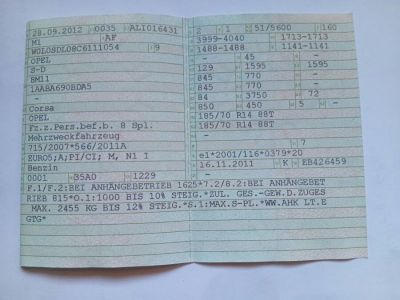 28.09.2012 0035 ALI016431
M1 AF
W0L0SDL08C6111054 9
OPEL
S-D
BM11
1AABA690BDA5
-
Corsa
OPEL
Fz.z.Pers.bef.b. 8 Spl.
Mehrzweckfahrzeug
715/2007*566/2011A
EURO5;A;PI/CI; M, N1 I
Benzin
0001 35A0 1229
2 1 51/5600 160
3999-4040 1713-1713
1488-1488 1141-1141
- 45 -
129 1595 1595
845 770 -
845 770 -
84 3750 72
850 450 5 -
185/70 R14 88T
185/70 R14 88T
-
- 7
e1*2001/116*0379*20
16.11.2011 K EB426459
F.1/F.2:BEI ANHÄNGEBETRIEB 1625*7.2/8.2:BEI ANHÄNGEBET
RIEB 815*O.1:1000 BIS 10% STEIG.*ZUL. GES.-GEW.D.ZUGES
MAX. 2455 KG BIS 12% STEIG.*S.1:MAX.S-PL.*WW.AHK LT.E
GTG*